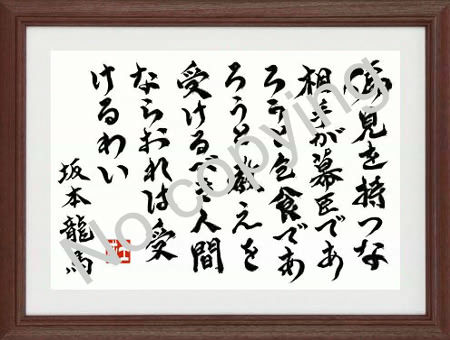 偏見を持つな
相手が幕臣であ
ろうと乞食であ
ろうと教えを
受けるべき人間
ならおれは受
けるわい
坂本龍馬
No copying